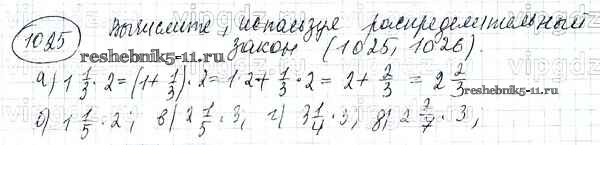 1025 Вычислите, используя распределительный
закон (1025, 1026).
reshebnik5-11.ru
а) 1 1/3 · 2 = (1 + 1/3) · 2 = 1 · 2 + 1/3 · 2 = 2 + 2/3 = 2 2/3
reshebnik5-11.ru
б) 1 1/5 · 2; в) 2 1/5 · 3, г) 3 1/4 · 3, д) 2 2/7 · 3;